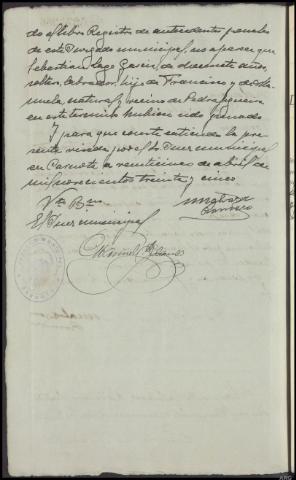 do al libro Registro de antecedentes penales
de este Juzgado municipal, no aparece que
Sebastian Lago Garcia, de diecisiete años,
soltero, labrador, hijo de Francisco y de
Manuela, natural y vecino de Pedrafigueira
en este termino hubiese sido penado
Y para que conste extiendo la pre
sente visada por el Sr. Juez municipal
en Carnota a veinticinco de abril de
mil novecientos treinta y cinco
Vto Bno
El Juez municipal
Manuel